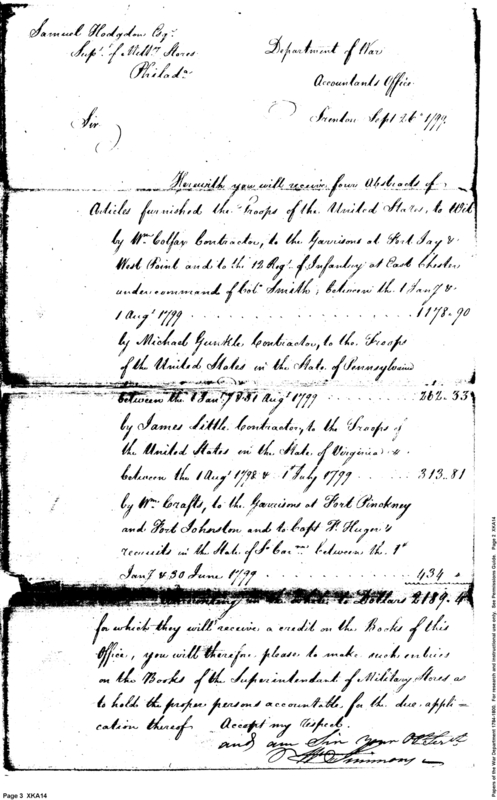 Samuel Hodgdon Esqr
Supt. of Milty. Stores
Philada
Department of War
Accountants Office
Trenton Sept 26th 1799
Sir
Herewith you will receive four Abstracts of
Articles furnished the Troops of the United States, to Wit
by Wm. Colfax Contractor, to the Garrisons at Fort Jay &
West Point and to the 12 Regt. of Infantry at East Chester
under command of Colo. Smith, between the 1 Jany &
1 Augt 1799 1178-90
by Michael Gunkle Contractor, to the Troops
of the United States in the State of Pennsylvania
between the 1 Jany & 31 Augt 1799 262-33
by James Little Contractor, to the Troops of
the United States in the State of Virginia
between the 1 Augt 1798 & 1st July 1799 313-81
by Wm. Crafts, to the Garrisons at Fort Pinckney
and Fort Johnston and to Capt. Huger's
recruits in the State of So. Caro. between the 1st
Jany & 30 June 1799 434
in the to Dollars 2189.4
for which they will receive a credit on the Books of this
Office, you will therefore please to make such entries
on the Books of the Superintendent of Military Stores as
to hold the proper persons accountable for the due appli-
cation thereof. Accept my respect.
and am Sir your Ob. Servt.
Wm Simmons
Page 3 XKA14
Papers of the War Department 1784-1800. For research and instructional use only. See Permissions Guide. Page 3 XKA14